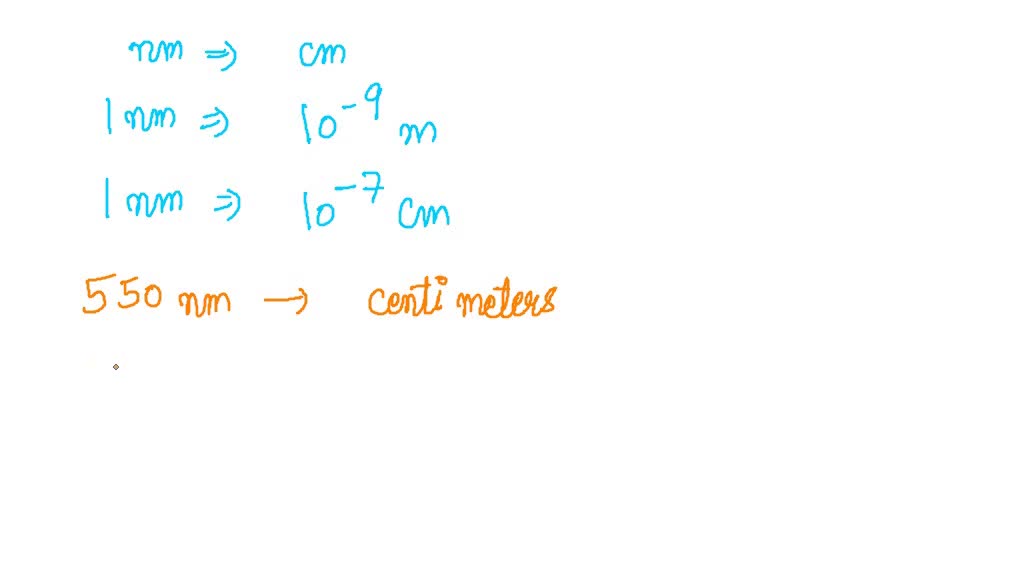 nm ⇒ cm
1 nm ⇒ 10⁻⁹ m
1 nm ⇒ 10⁻⁷ cm
550 nm → centimeters